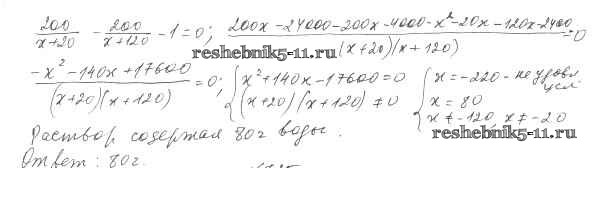 200/(x+20) - 200/(x+120) - 1 = 0; (200x - 24000 - 200x - 4000 - x² - 20x - 120x - 2400)/((x+20)(x+120)) = 0
reshebnik5-11.ru
(-x² - 140x + 17600)/((x+20)(x+120)) = 0; { x² + 140x - 17600 = 0 (x+20)(x+120) ≠ 0 { x = -220 - не удовл. усл. x = 80 x ≠ -120, x ≠ -20
Раствор содержал 80г воды.
reshebnik5-11.ru
Ответ: 80г.